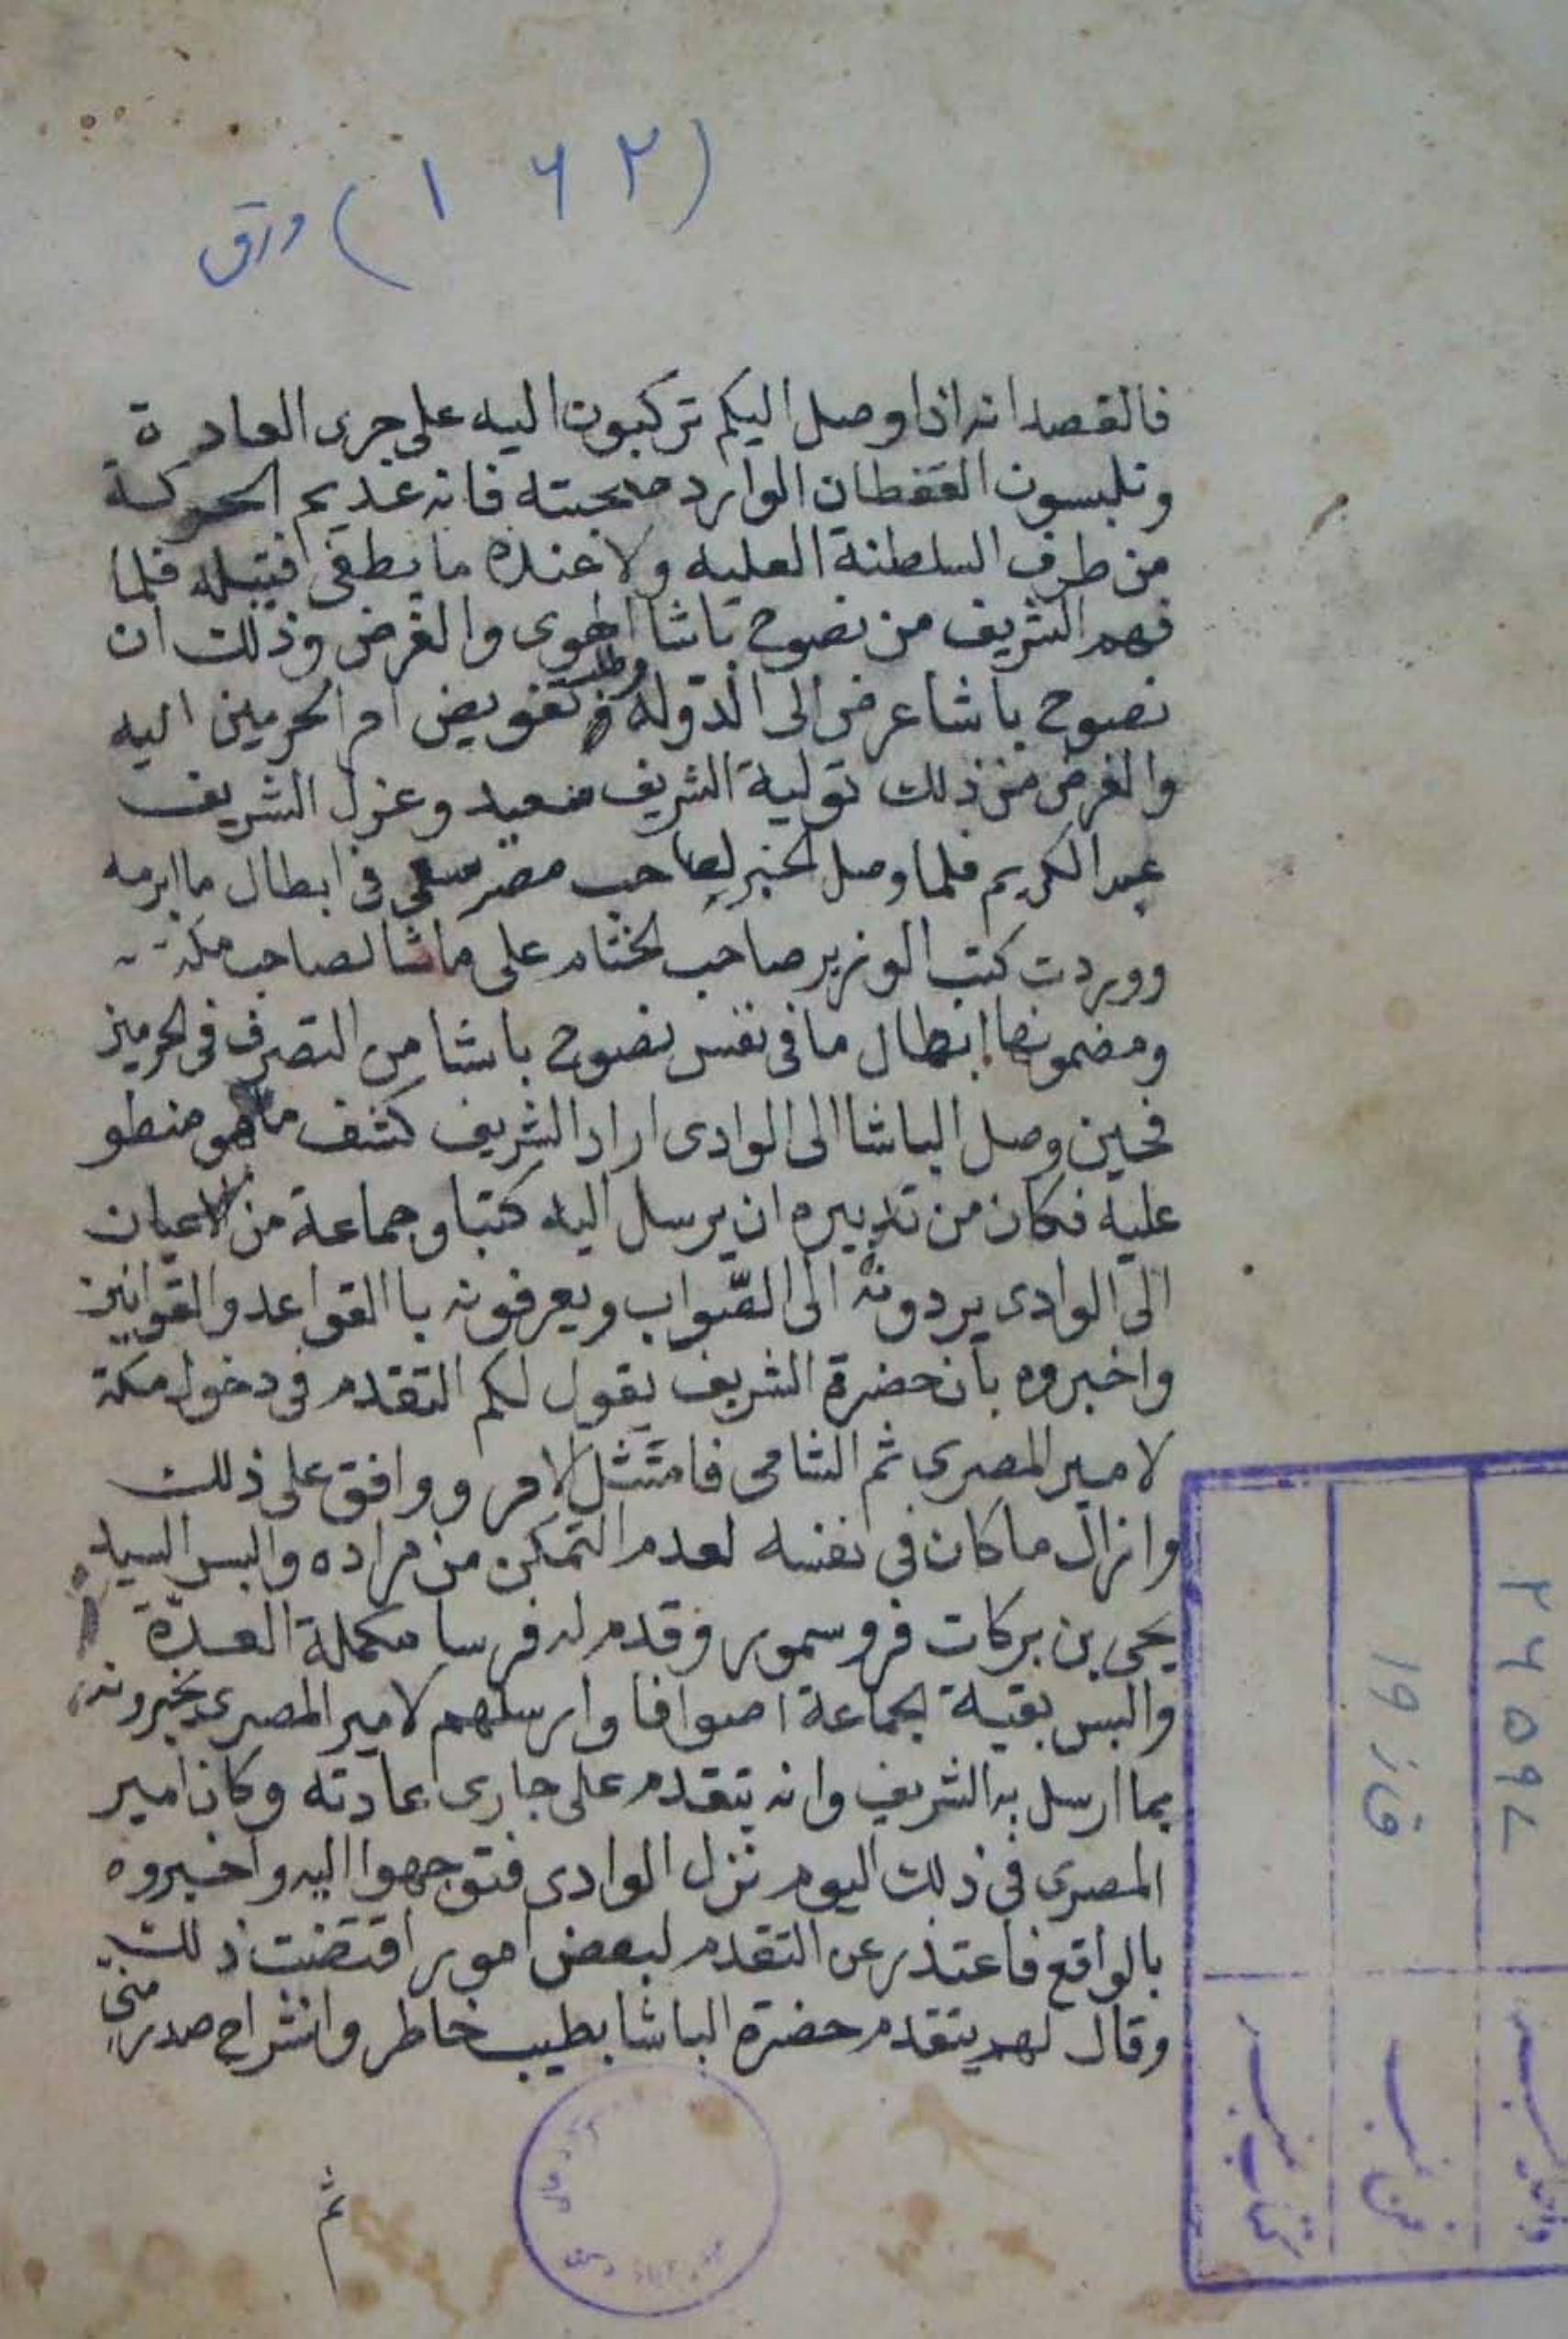 (١٦٢) ورق
فالقصد انه اذا وصل اليكم تركبون اليه على جرى العادة
وتلبسون القفطان الوارد صحبته فانه عديم الحركة
من طرف السلطنة العليه ولا عنده ما يطفى فتيله فلما
فهم الشريف من نصوح باشا الهوى والغرض وذلك ان
نصوح باشا عرض الى الدولة وطلب تفويض امر الحرمين اليه
والغرض من ذلك تولية الشريف سعيد وعزل الشريف
عبد الكريم فلما وصل الخبر لصاحب مصر سعى فى ابطال ما ابرمه
ووردت كتب الوزير صاحب الختام على ماشا لصاحب مكة
ومضمونها ابطال ما فى نفس نصوح باشا من التصرف فى الحرمين
فحين وصل الباشا الى الوادى اراد الشريف كشف ما هو منطو
عليه فكان من تدبيره ان يرسل اليه كتبا وجماعة من الاعيان
الى الوادى يردونه الى الصّواب ويعرفونه با القواعد والقوانين
واخبروه بان حضرة الشريف يقول لكم التقدم فى دخول مكة
لامير المصرى ثم الشامى فامتثل الامر ووافق على ذلك
وازال ماكان فى نفسه لعدم التمكن من مراده والبس السيد
يحيى بن بركات فرو سمور وقدم له فرسا مكملة العدّة
والبس بقية الجماعة اصوافا وارسلهم لامير المصرى يخبرونه
بما ارسل به الشريف وانه يتقدم على جارى عادته وكان امير
المصرى فى ذلك اليوم نزل الوادى فتوجهوا اليه واخبروه
بالواقع فاعتذر عن التقدم لبعض امور اقتضت ذلك
وقال لهم يتقدم حضرة الباشا بطيب خاطر وانشراح صدر منّى
ثم
٢٤٥٩٨
١٩ ف
فن نمبر
كتاب نمبر